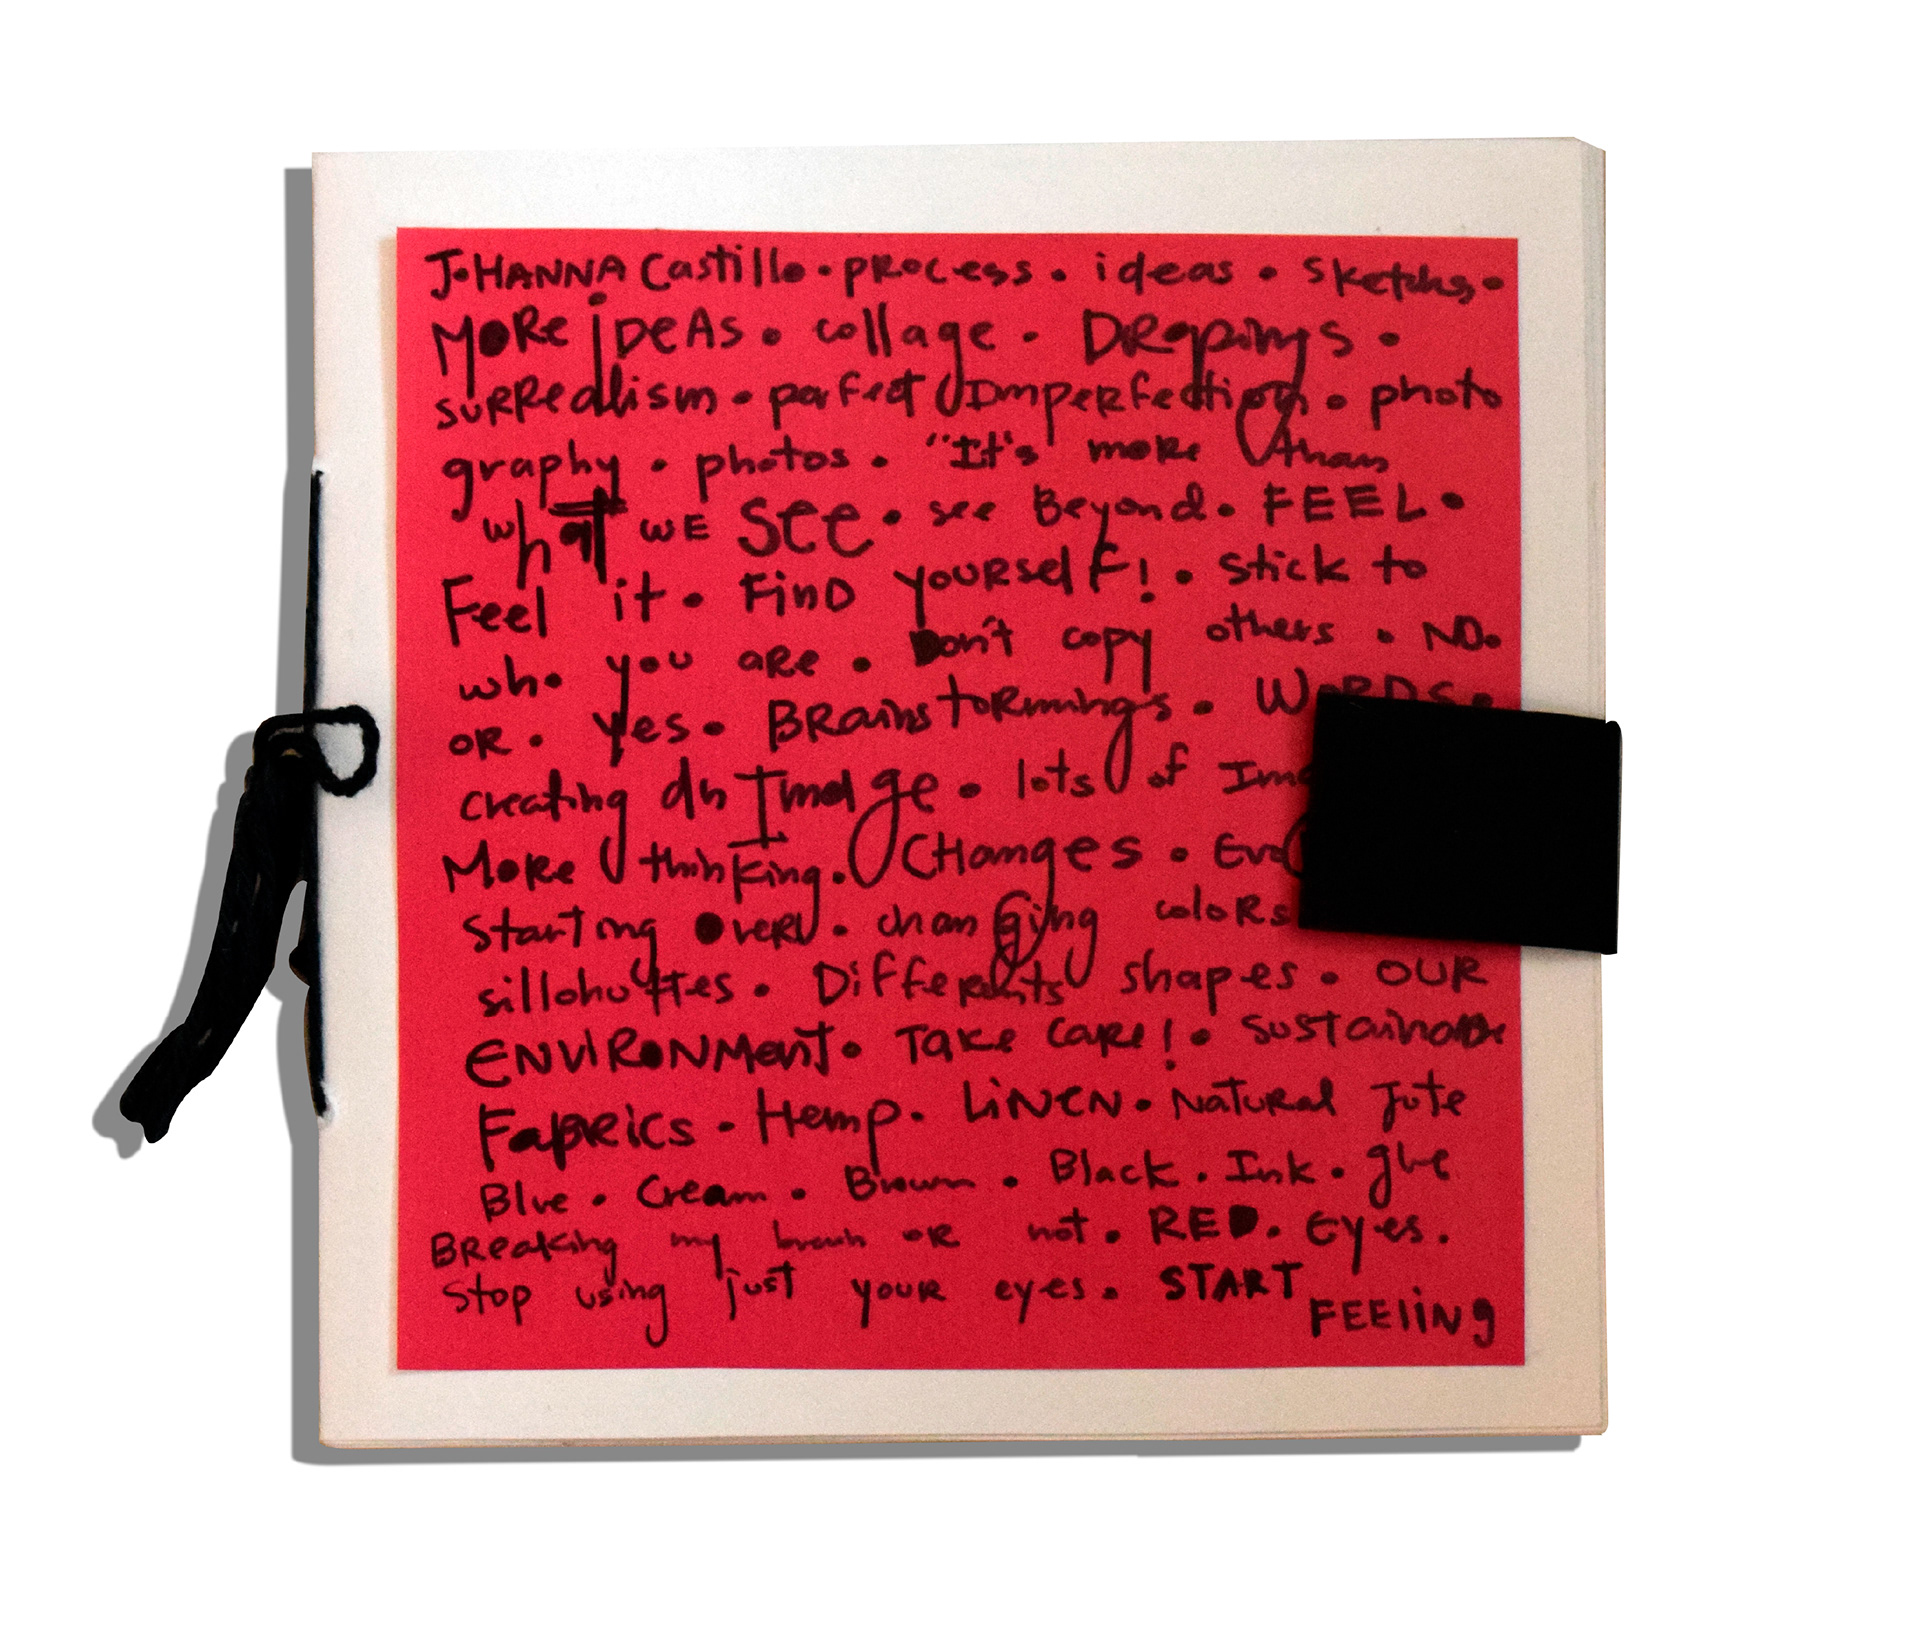 JoHANNA Castillo • process • ideas • sketchs •
MORe iDeAs • collage • DRapings •
suRRealism • perfect ImpeRfection • photo
graphy • photos • "It's more than
what WE see • see Beyond • FEEL •
Feel it • FinD youRself! • stick to
who you are • Don't copy others • NO •
OR • yes • BRainstormings • WoRDS •
creating an Image • lots of
MoRe thinking • CHanges •
starting over • changing coloRs
sillohuttes • DiffeRents shapes • OUR
ENVIRONMent • Take caRe! • sustainable
FabRics • Hemp • LiNEN • Natural Jute
Blue • Cream • Brown • Black • Ink • glue
BReaking my brain oR not • RED • Eyes •
stop using just youR eyes • START
FEEliNg